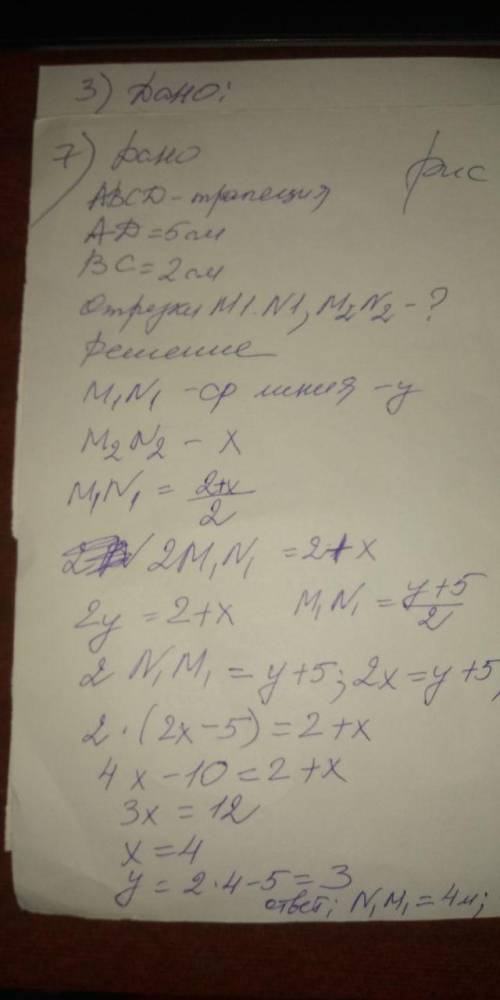 3) Дано:
7) Дано
рис
ABCD - трапеция
AD = 5 см
BC = 2 см
Отрезки M1.N1, M₂N₂ - ?
Решение
M₁N₁ - ср линия - y
M₂N₂ - x
M₁N₁ = (2+x)/2
2M₁N₁ = 2+x
2y = 2+x M₁N₁ = (y+5)/2
2 N₁M₁ = y+5; 2x = y+5,
2·(2x-5) = 2+x
4x-10 = 2+x
3x = 12
x = 4
y = 2·4-5 = 3
ответ; N₁M₁ = 4м;